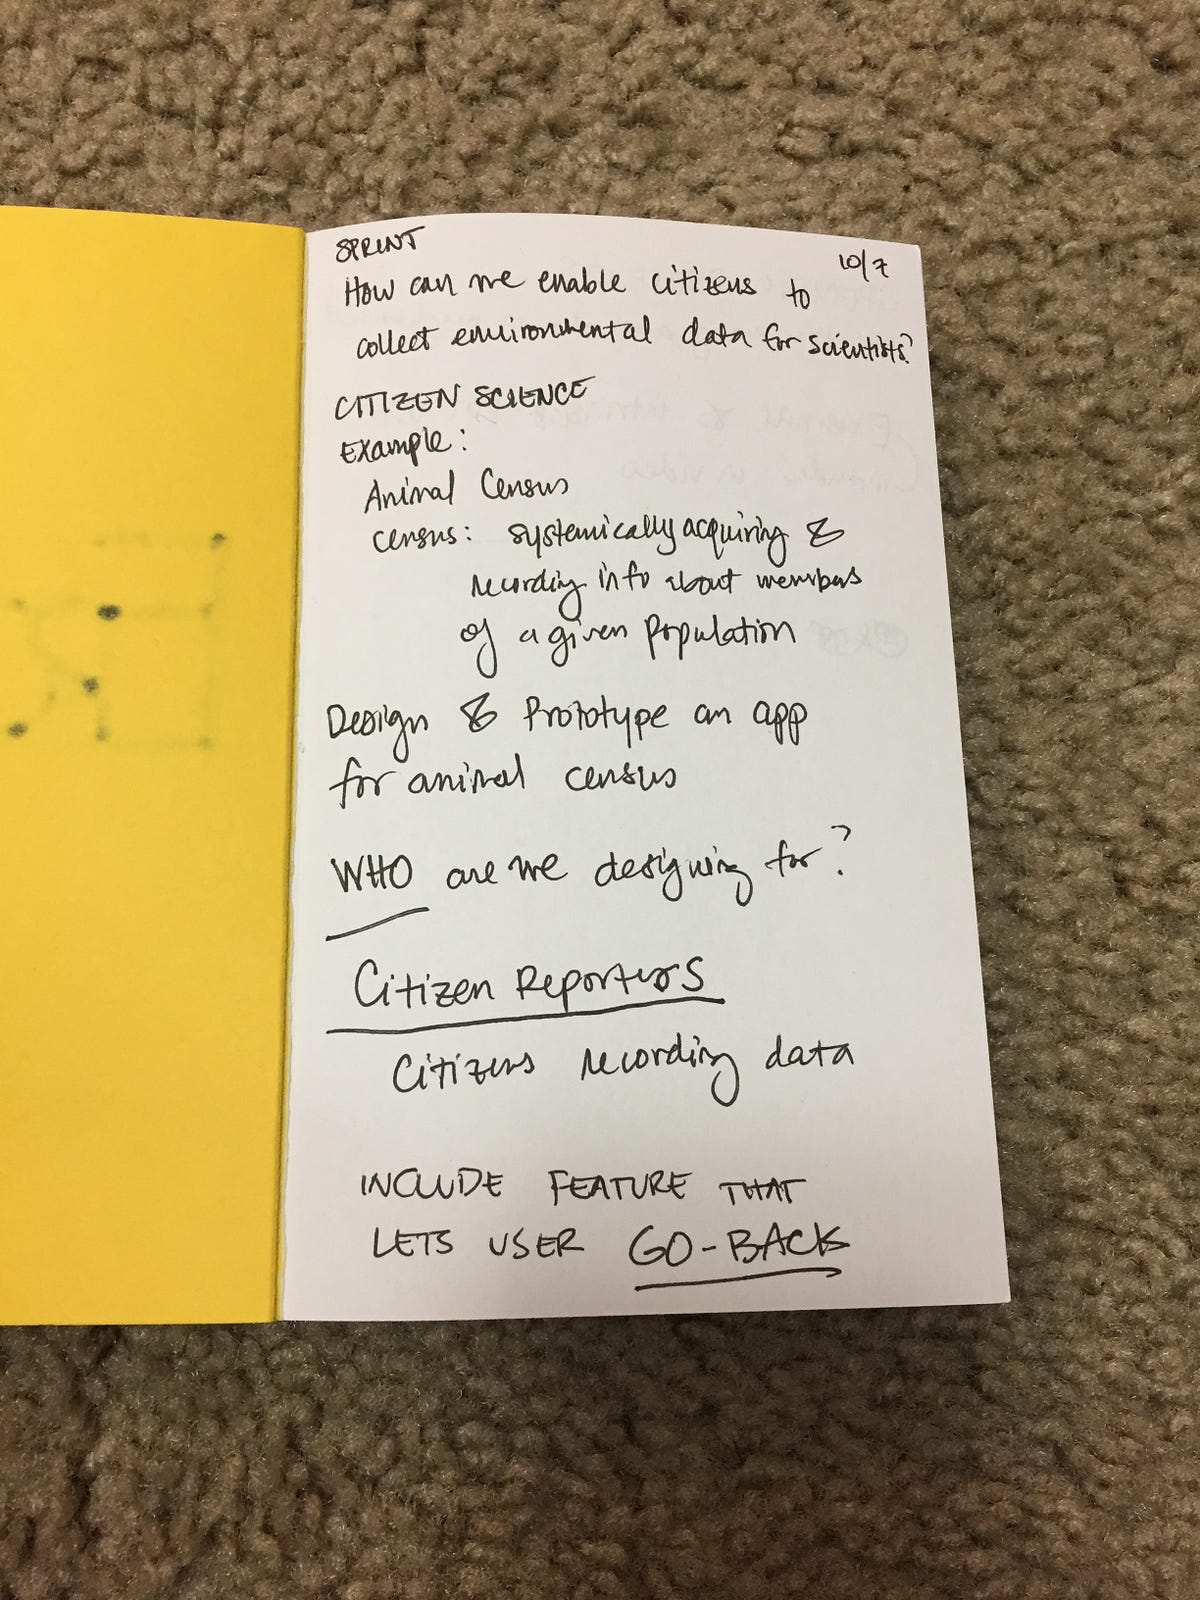 SPRINT
10/7
How can we enable citizens to
collect environmental data for scientists?
CITIZEN SCIENCE
Example:
Animal Census
census: systemically acquiring &
recording info about members
of a given population
Design & Prototype an app
for animal census
WHO are we designing for?
Citizen Reporters
Citizens recording data
INCLUDE FEATURE THAT
LETS USER GO-BACK